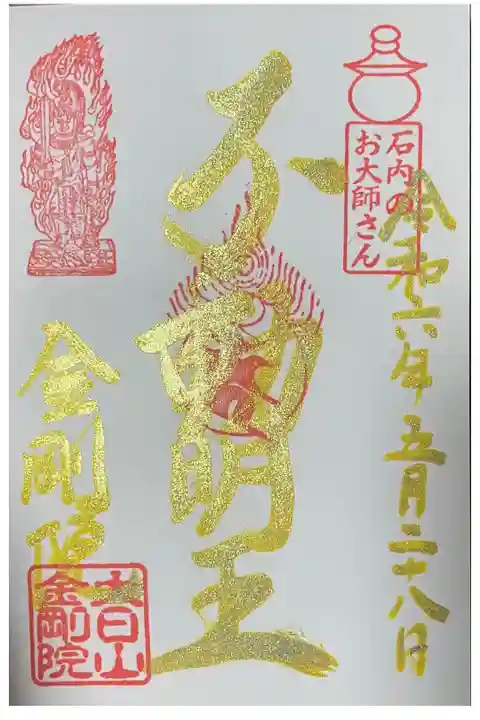 石内の
お大師さん
令和六年五月二十八日
不動明王
金剛院
大日山
金剛院